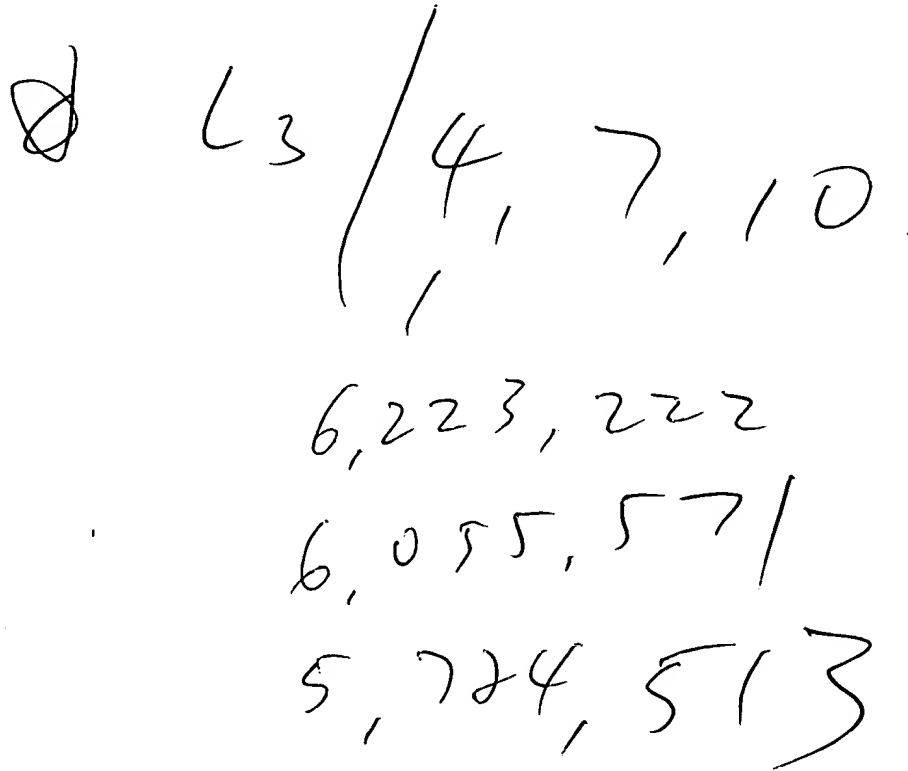 L3/4, 7, 10
6,223,222
6,055,571
5,784,513